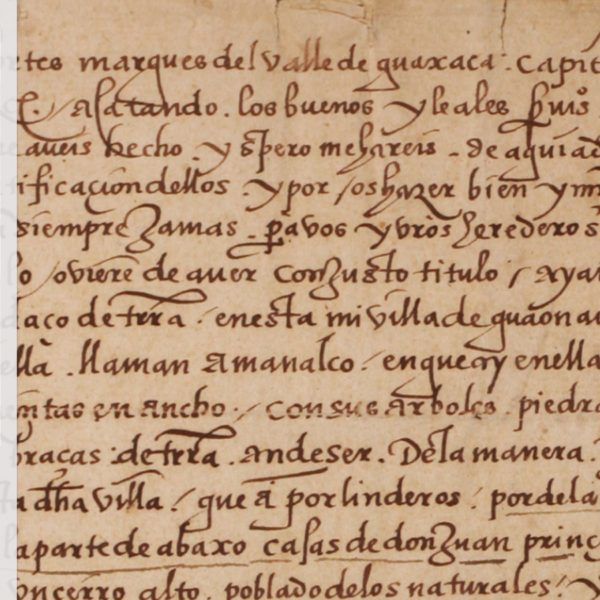 rtes marques del valle de guaxaca. capit
acatando. los buenos y leales serui⁰s
aueis hecho. y espero me hareis. de aqui ad
tificaçion dellos. y por os hazer bien y m
siempre Jamas. pa vos y vros herederos
lo ouiere de auer con Justo titulo / aya
aço de trra. en esta mi villa de guaonau
lla. llaman amanalco. en que ay en ella
ntas en ancho. con sus arboles. piedra
braças de trra. an de ser. De la manera.
a dha villa / que a por linderos. por de la
a parte de abaxo casas de don Juan princ
vn cerro alto. poblado de los naturales. y